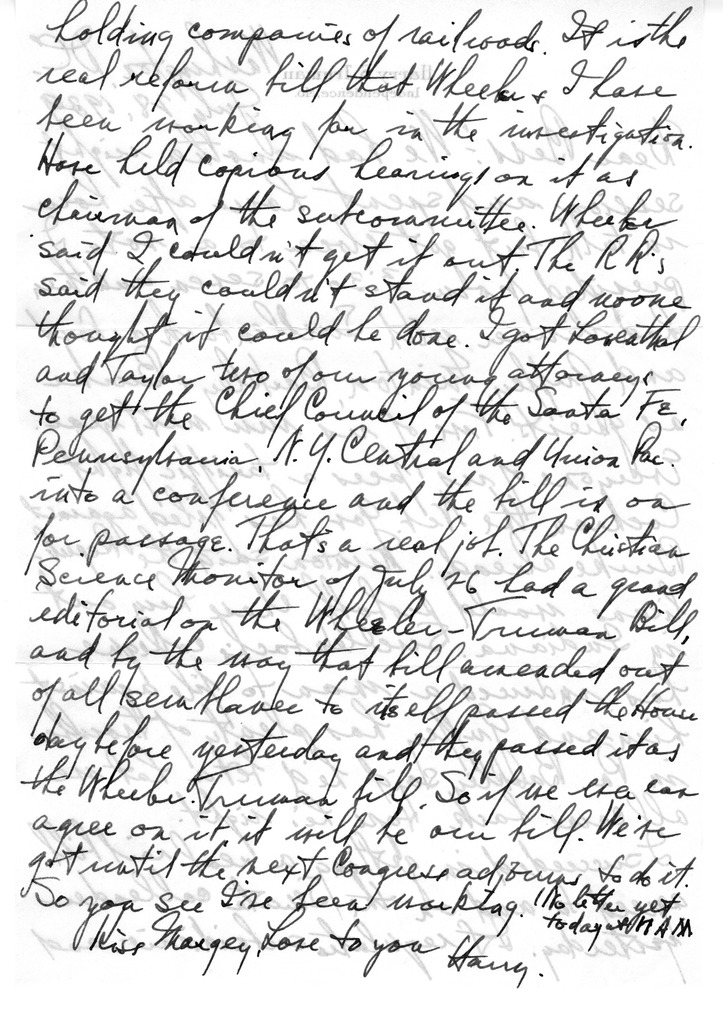 holding companies of railroads. It is the
real reform bill that Wheeler & I have
been working for in the investigation.
Have held copious hearings on it as
chairman of the subcommittee. Wheeler
said I couldn't get it out. The R.R.s
said they couldn't stand it and no one
thought it could be done. I got Lowenthal
and Taylor two of our young attorneys
to get the Chief Council of the Santa Fe,
Pennsylvania, N.Y. Central and Union Pac.
into a conference and the bill is on
for passage. That's a real job. The Christian
Science Monitor of July 26 had a grand
editorial on the Wheeler-Truman Bill,
and by the way that bill amended out
of all semblance to itself passed the House
day before yesterday and they passed it as
the Wheeler-Truman bill. So if we ever can
agree on it it will be our bill. We've
got until the next Congress adjourns to do it.
So you see I've been working. No letter yet
today
Kiss Margey, Love to you
Harry.